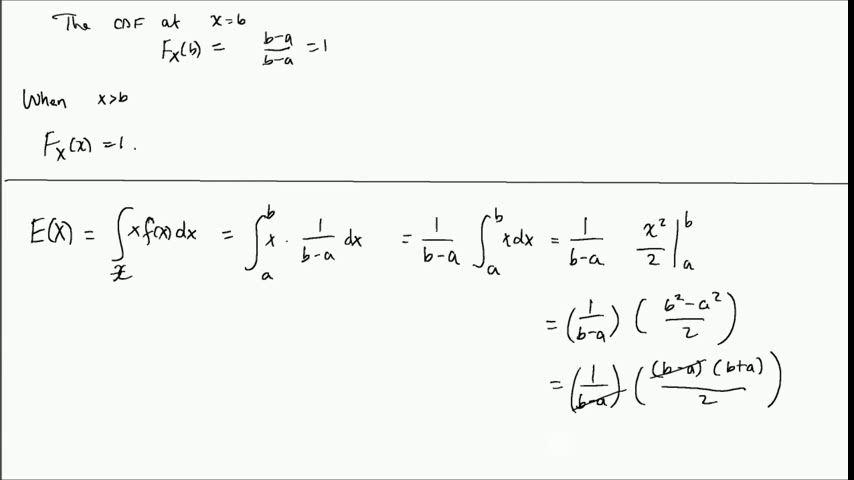 The CDF at x=b
F_X(b) = \frac{b-a}{b-a} = 1
When x>b
F_X(x) = 1.
E(X) = \int_{\mathcal{X}} x f(x) dx = \int_a^b x \cdot \frac{1}{b-a} dx = \frac{1}{b-a} \int_a^b x dx = \frac{1}{b-a} \frac{x^2}{2} |_a^b
= (\frac{1}{b-a}) (\frac{b^2-a^2}{2})
= (\frac{1}{b-a}) (\frac{(b-a)(b+a)}{2})